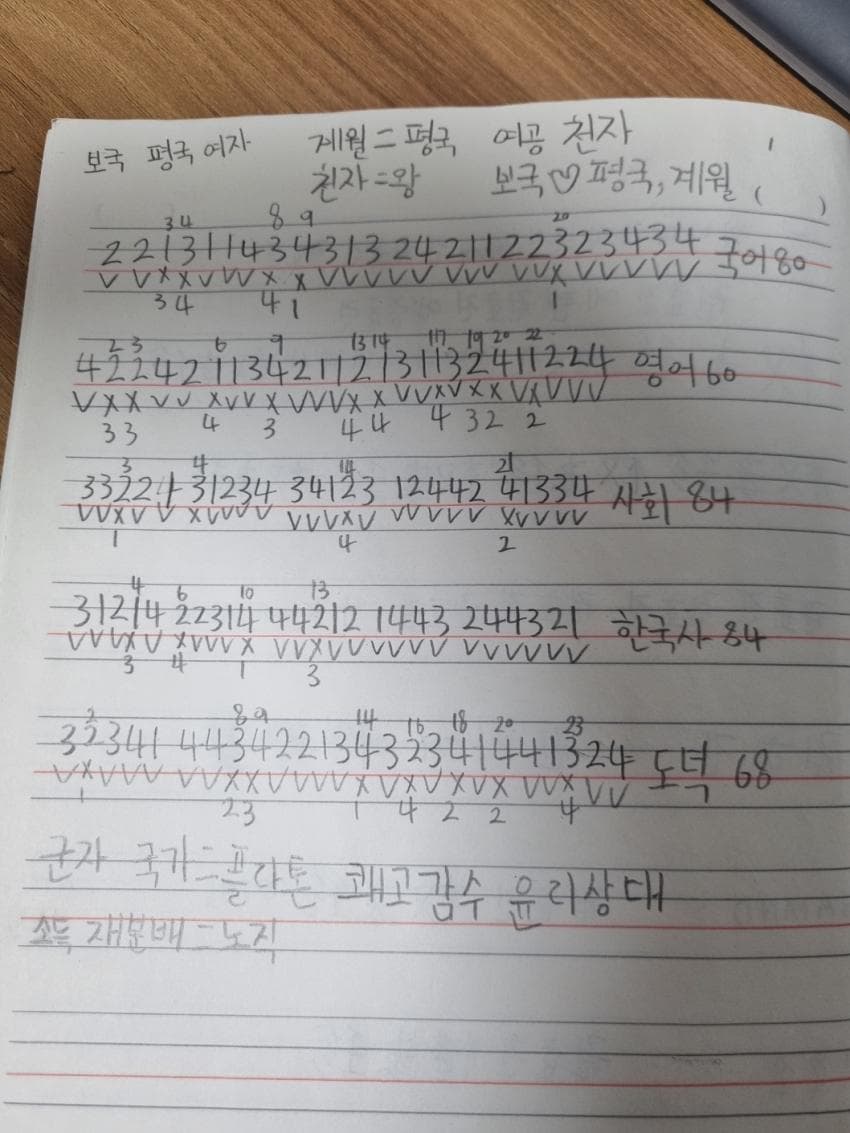 보국 평국 여자 계월=평국 여공 천자
천자=왕 보국♡평국, 계월 ( )
34 8 9 20
2213114343132421122323434 국어80
V V X X V V V X X V V V V V V V V V V X V V V V V
34 4 1 1
2 3 6 9 13 14 17 19 20 22
4224211342112131132411224 영어60
V X X V V X V V X V V V X X V V X V X X V X V V V
33 4 3 4 4 4 32 2
3 4 14 21
33224 31234 34123 12442 41334 사회 84
V V X V X V V V V V V V X V V V V V V X V V V V
1 4 2
4 6 10 13
31214 22314 44212 1443 244321 한국사 84
V V V X V X V V V X V V X V V V V V V V V V V V V
3 4 1 3
2 8 9 14 16 18 20 23
32341 44342213432341441324 도덕 68
V X V V V V V X X V V V V X V X V X V X V V X V V
1 23 1 4 2 2 4
군자 국가=플라톤 쾌고감수 윤리상대
소득 재분배=노직